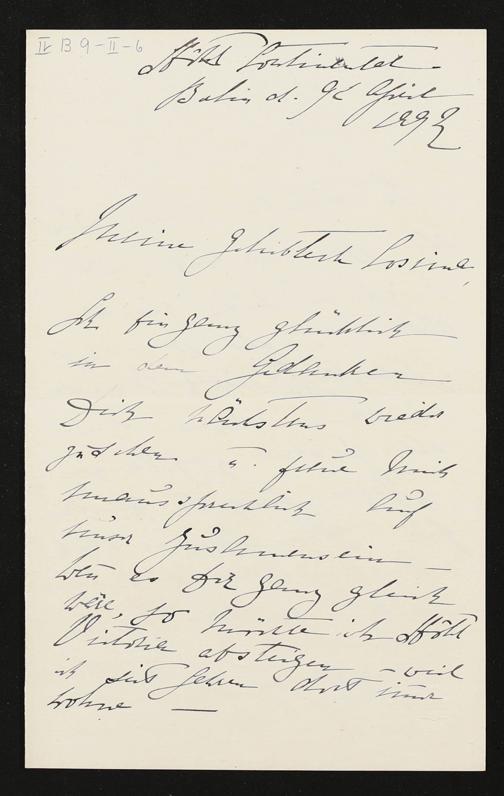 IV B 9-II-6
Hôtel Continental –
Berlin d. April
189
Meine geliebteste Cosima,
Ich bin ganz glücklich
in dem Gedanken
Dich nächstens wieder
zusehen u. freue mich
unaussprechlich auf
unser Zusammensein –
Wen es Dir ganz gleich
wäre, so möchte ich Hôtel
Victoria absteigen – weil
ich seit Jahren dort immer
wohne —